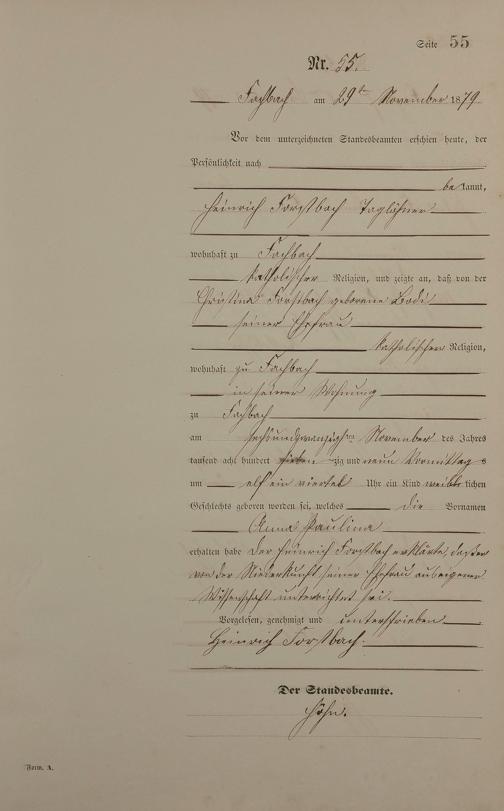 Seite 55
Nr. 55.
Fachbach am 29ten November 1879
Vor dem unterzeichneten Standesbeamten erschien heute, der
Persönlichkeit nach
be kannt,
Heinrich Forstbach Taglöhner
wohnhaft zu Fachbach
katholischer Religion, und zeigte an, daß von der
Christina Forstbach geborene Bodi
seiner Ehefrau
katholischer Religion,
wohnhaft zu Fachbach
in seiner Wohnung
zu Fachbach
am sechsundzwanzigsten November des Jahres
tausend acht hundert sieben zig und neun Vormittag s
um elf ein viertel Uhr ein Kind weib lichen
Geschlechts geboren worden sei, welches die Vornamen
Anna Paulina
erhalten habe Der Heinrich Forstbach erklärte, daß er
von der Niederkunft seiner Ehefrau aus eigener
Wissenschaft unterrichtet sei.
Vorgelesen, genehmigt und unterschrieben
Heinrich Forstbach.
Der Standesbeamte.
Höhn.
Form. A.